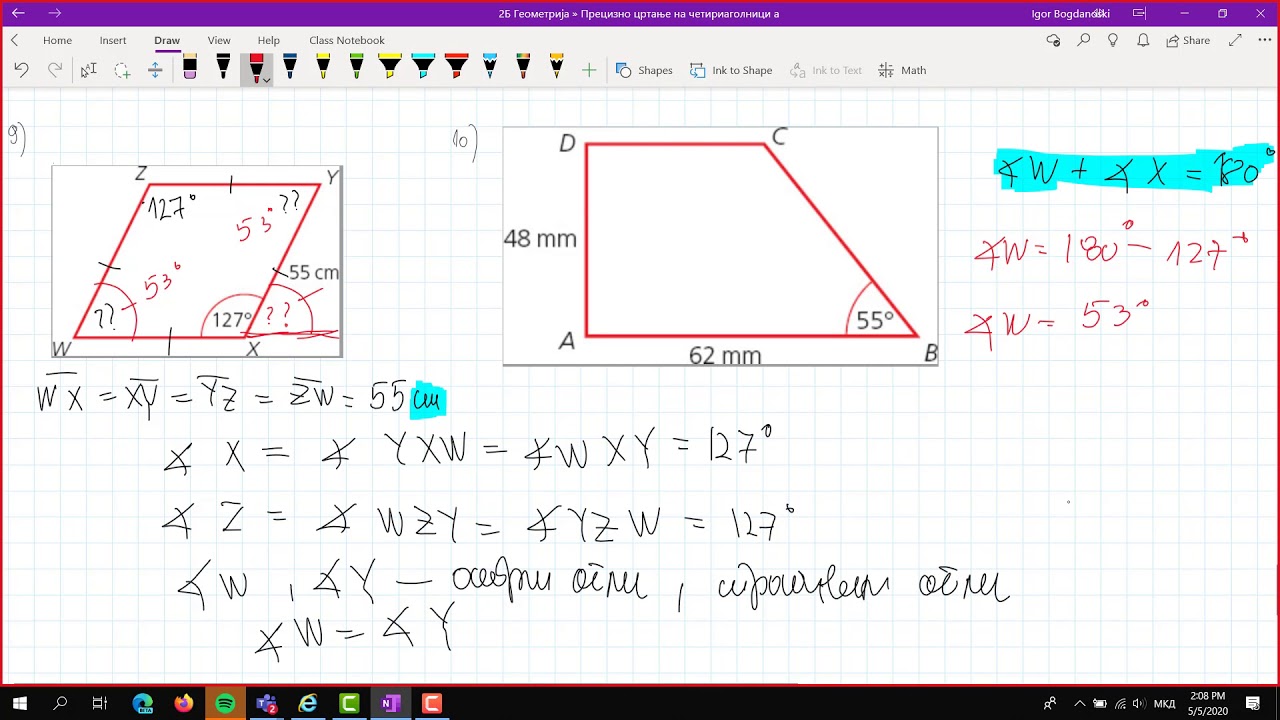 2Б Геометрија » Прецизно цртање на четириаголници а
Igor Bogdanoski
Home Insert Draw View Help Class Notebook
Share
Shapes Ink to Shape Ink to Text Math
9)
Z Y
127° ??
53°
53° 55 cm
?? 127° ??
W X
10)
D C
48 mm
55°
A B
62 mm
∢W + ∢X = 180°
∢W = 180° - 127°
∢W = 53°
WX = XY = YZ = ZW = 55 cm
∢ X = ∢ YXW = ∢WXY = 127°
∢ Z = ∢ WZY = ∢YZW = 127°
∢W , ∢Y — остри агли ,
∢W = ∢Y
BETA
2
N
МКД
2:08 PM
5/5/2020